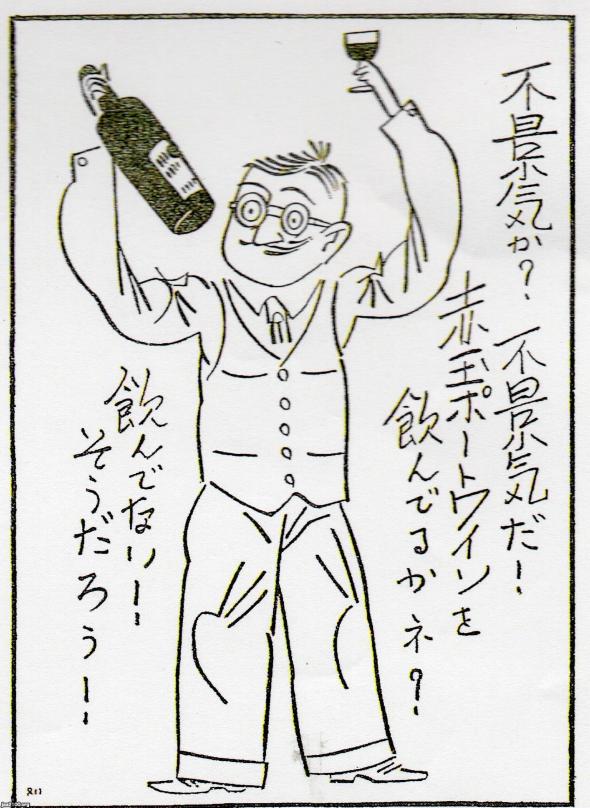 不景気か?
不景気だ!
赤玉ポートワインを
飲んでるかネ?
飲んでない!
そうだろう!